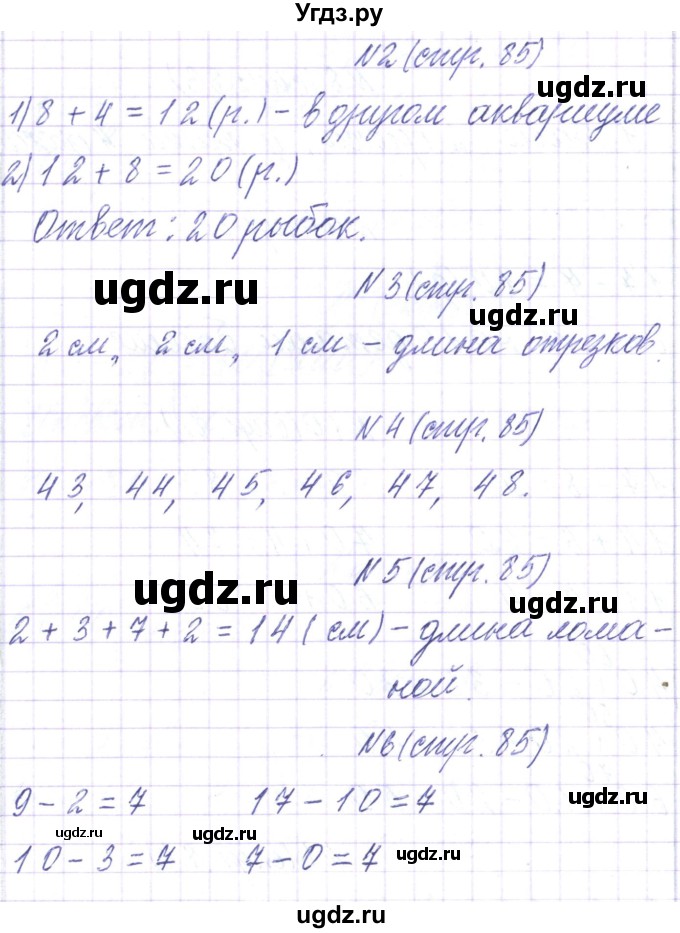 Угдз.ру
N2 (стр. 85)
ugdz.ru
1) 8 + 4 = 12 (р.) – в другом аквариуме
2) 12 + 8 = 20 (р.)
ugdz.ru
Ответ: 20 рыбок.
ugdz.ru
N3 (стр. 85)
ugdz.ru
2 см, 2 см, 1 см – длина отрезков.
N4 (стр. 85)
ugdz.ru
43, 44, 45, 46, 47, 48.
ugdz.ru
N5 (стр. 85)
ugdz.ru
2 + 3 + 7 + 2 = 14 (см) – длина лома-
ной.
ugdz.ru
N6 (стр. 85)
9 – 2 = 7 17 – 10 = 7
ugdz.ru
ugdz.ru ugdz.ru
10 – 3 = 7 7 – 0 = 7
ugdz.ru
ugdz.ru